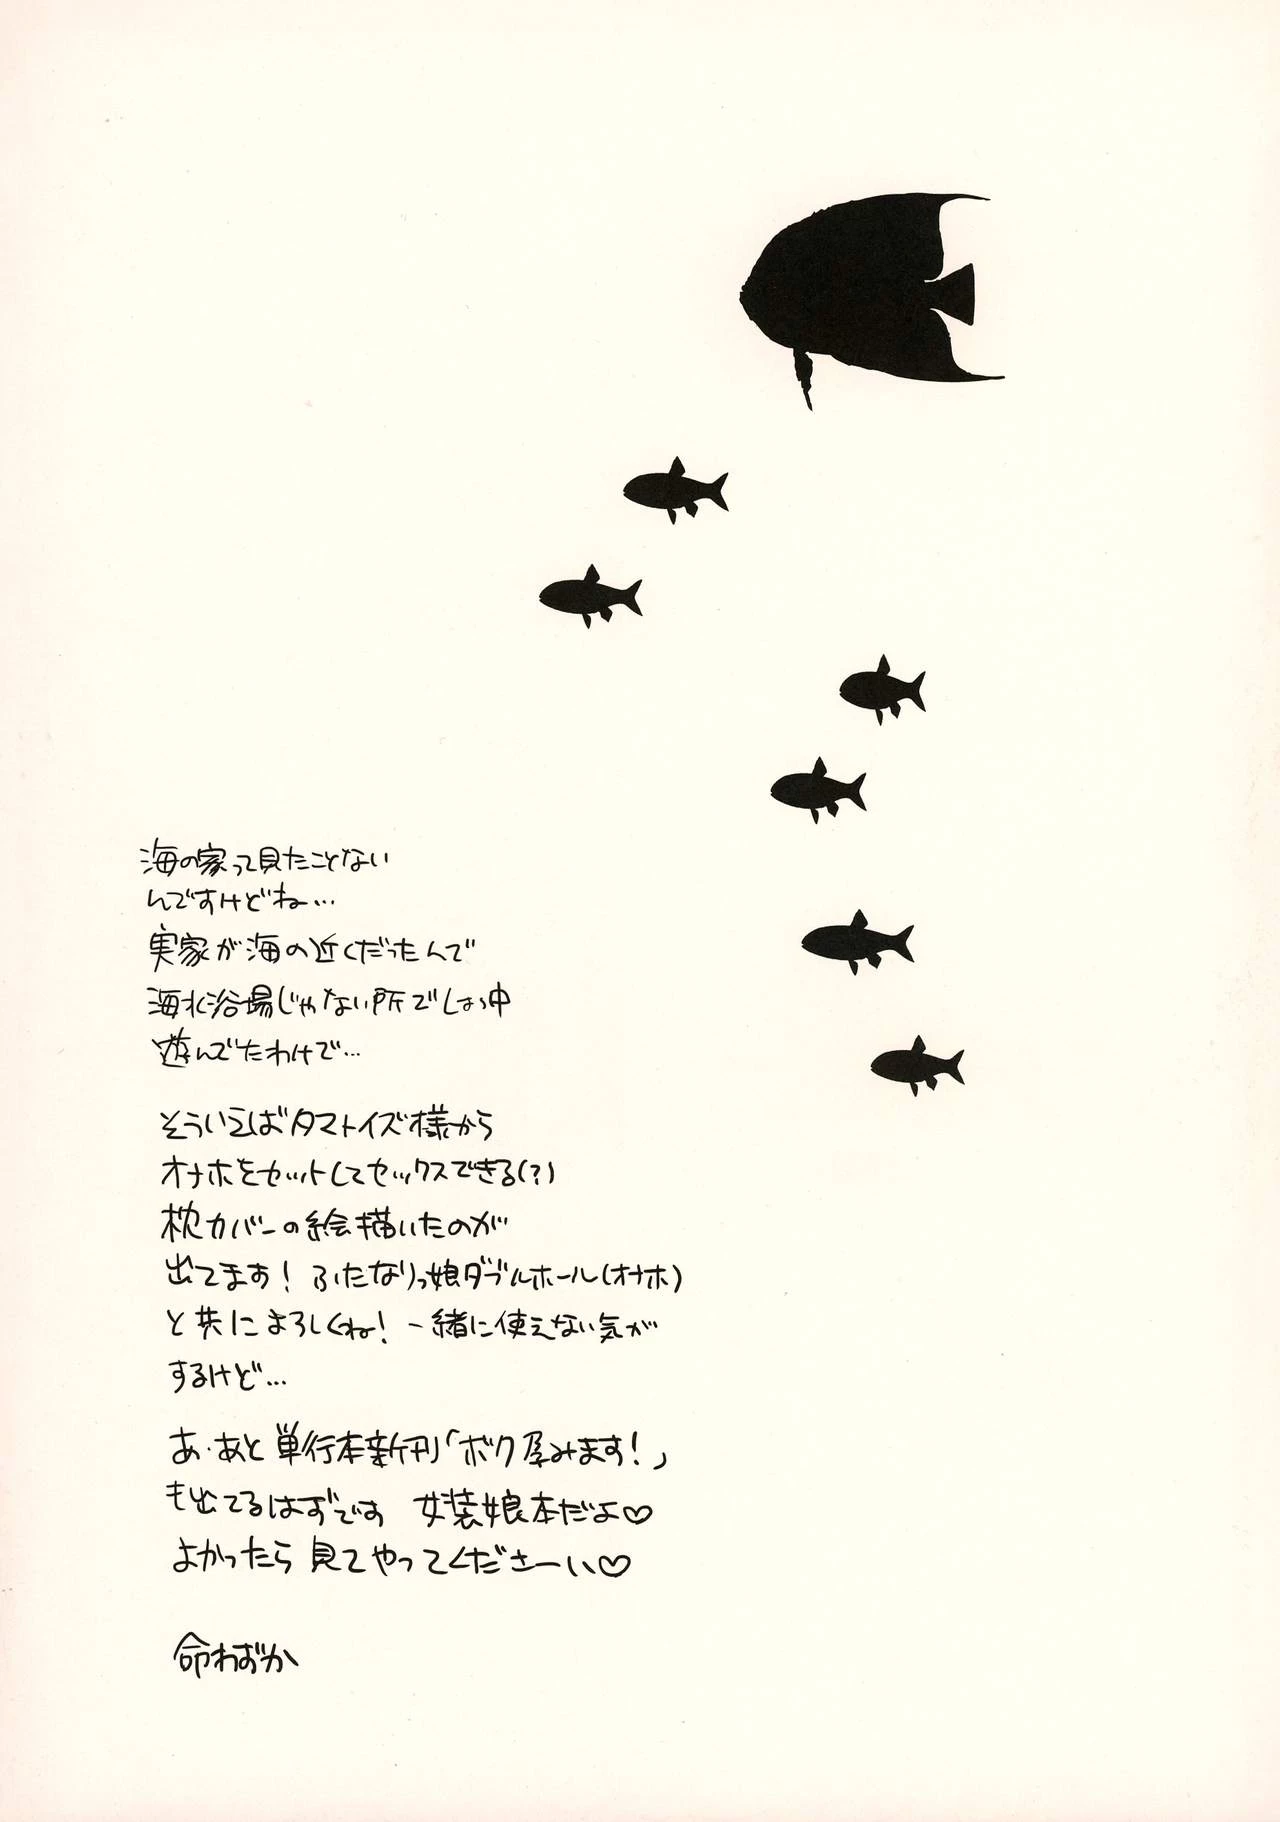 海の家って見たことない
んですけどね…
実家が海の近くだったんで
海水浴場じゃない所でしょっ中
遊んでたわけで…
そういえばタマトイズ様から
オナホをセットしてセックスできる(?)
枕カバーの絵描いたのが
出てます! ふたなりっ娘ダブルホール(オナホ)
と共によろしくね! 一緒に使えない気が
するけど…
あ、あと単行本新刊「ボク孕みます!」
も出てるはずです 女装娘本だよ♡
よかったら見てやってくださーい♡
命わずか